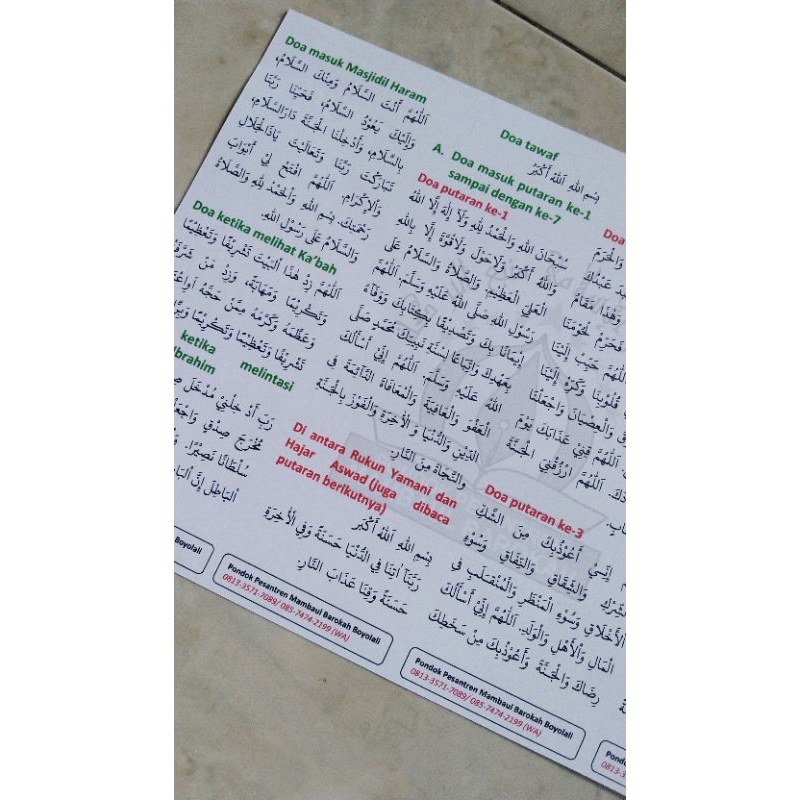 Doa masuk Masjidil Haram
اَللّٰهُمَّ أَنْتَ السَّلَامُ وَمِنْكَ السَّلَامُ،
وَإِلَيْكَ يَعُوْدُ السَّلَامُ، فَحَيِّنَا رَبَّنَا
بِالسَّلَامِ، وَأَدْخِلْنَا الْجَنَّةَ دَارَالسَّلَامِ،
تَبَارَكْتَ رَبَّنَا وَتَعَالَيْتَ يَاذَالْجَلَالِ
وَالْإِكْرَامِ. اَللّٰهُمَّ افْتَحْ لِيْ أَبْوَابَ
رَحْمَتِكَ. بِسْمِ اللهِ وَالْحَمْدُ لِلّٰهِ وَالصَّلَاةُ
وَالسَّلَامُ عَلَى رَسُوْلِ اللهِ.
Doa ketika melihat Ka'bah
اَللّٰهُمَّ زِدْ هٰذَا الْبَيْتَ تَشْرِيْفًا وَتَعْظِيْمًا
وَتَكْرِيْمًا وَمَهَابَةً، وَزِدْ مَنْ شَرَّفَهُ
وَعَظَّمَهُ وَكَرَّمَهُ مِمَّنْ حَجَّهُ أَوِاعْتَمَرَهُ
تَشْرِيْفًا وَتَعْظِيْمًا وَتَكْرِيْمًا
ketika melintasi
Ibrahim
رَبِّ أَدْخِلْنِيْ مُدْخَلَ
مُخْرَجَ صِدْقٍ وَاجْعَلْ
سُلْطَانًا نَصِيْرًا.
الْبَاطِلَ إِنَّ
Boyolali
Doa tawaf
A. Doa masuk putaran ke-1
sampai dengan ke-7
بِسْمِ اللهِ اَللهُ أَكْبَرُ
Doa putaran ke-1
سُبْحَانَ اللهِ وَالْحَمْدُ لِلّٰهِ وَلَآ إِلٰهَ إِلَّا اللهُ
وَاللهُ أَكْبَرُ وَلَاحَوْلَ وَلَاقُوَّةَ إِلَّا بِاللهِ
الْعَلِيِّ الْعَظِيْمِ وَالصَّلَاةُ وَالسَّلَامُ عَلَى
رَسُوْلِ اللهِ صَلَّى اللهُ عَلَيْهِ وَسَلَّمَ. اَللّٰهُمَّ
إِيْمَانًا بِكَ وَتَصْدِيْقًا بِكِتَابِكَ وَوَفَاءً
بِعَهْدِكَ وَاتِّبَاعًا لِسُنَّةِ نَبِيِّكَ مُحَمَّدٍ صَلَّى
اللهُ عَلَيْهِ وَسَلَّمَ. اَللّٰهُمَّ إِنِّيْ أَسْأَلُكَ
الْعَفْوَ وَالْعَافِيَةَ وَالْمُعَافَاةَ الدَّائِمَةَ فِى
الدِّيْنِ وَالدُّنْيَا وَ الْأَخِرَةِ وَالْفَوْزَ بِالْجَنَّةِ
وَالنَّجَاةَ مِنَ النَّارِ.
Di antara Rukun Yamani dan
Hajar Aswad (juga dibaca
putaran berikutnya)
بِسْمِ اللهِ اَللهُ أَكْبَر
رَبَّنَآ اٰتِنَا فِي الدُّنْيَا حَسَنَةً وَفِي الْأَخِرَةِ
حَسَنَةً وَقِنَا عَذَابَ النَّارِ.
Pondok Pesantren Mambaul Barokah Boyolali
0813-3571-7089/ 085-7474-2199 (WA)
Doa
وَالْحَرَمَ
عَبْدُكَ
وَهٰذَا مَقَامُ
فَحَرِّمْ لُحُوْمَنَا
اَللّٰهُمَّ حَبِّبْ إِلَيْنَا
قُلُوْبِنَا وَكَرِّهْ إِلَيْنَا
وَالْعِصْيَانَ وَاجْعَلْنَا
اَللّٰهُمَّ قِنِيْ عَذَابَكَ يَوْمَ
اَللّٰهُمَّ ارْزُقْنِي الْجَنَّةَ
Doa putaran ke-3
إِنِّيْ أَعُوْذُبِكَ مِنَ الشَّكِّ
وَالشِّقَاقِ وَالنِّفَاقِ وَسُوْءِ
الْأَخْلَاقِ وَسُوْءِ الْمَنْظَرِ وَالْمُنْقَلَبِ فِى
الْمَالِ وَالْأَهْلِ وَالْوَلَدِ. اَللّٰهُمَّ إِنِّيْ أَسْأَلُكَ
رِضَاكَ وَالْجَنَّةَ وَأَعُوْذُبِكَ مِنْ سَخَطِكَ
Pondok Pesantren Mambaul Barokah Boyolali
0813-3571-7089/ 085-7474-2199 (WA)
Pondok
0813-3